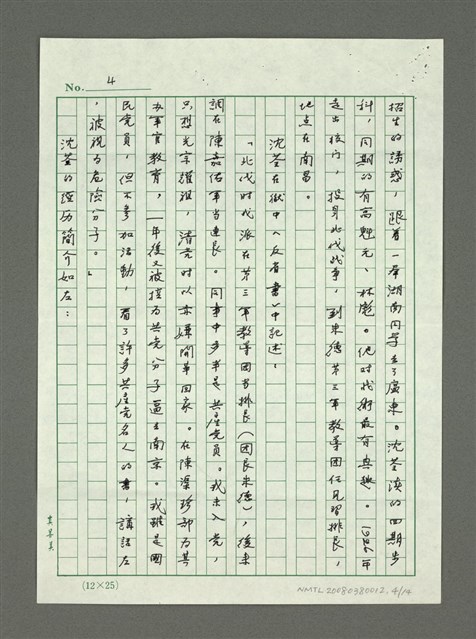 No. 4
招生的誘惑，跟着一羣湖南同學去了廣東。沈荃讀的四期步
科，同期的有高魁元、林彪。他对战術最有兴趣。一九二六年
走出校门，投身北伐战爭，到朱德第三軍教導團任見習排長，
地点在南昌。
沈荃在獄中《反省書》中記述：
「北伐时代派在第三軍教導团当排長（团長朱德），後来
調在陳嘉佑軍当連長。同事中多半是共產党員。我未入党，
只想光宗耀祖，清党时以赤嫌開革回家。在陳渠珍部为其
办軍官教育，一年後又被控为共党分子逼去南京。我雖是國
民党員，但不參加活動，看了許多共產党名人的書，講話左
，被視为危險分子。」
沈荃的經历簡介如左：
(12×25)
NMTL20080380012, 4/14